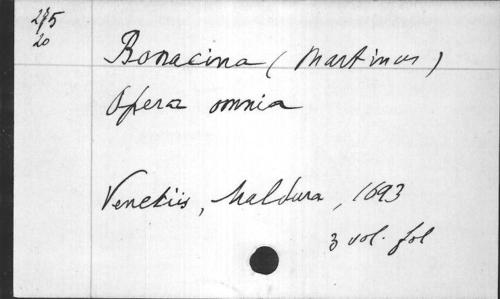 275
20
Bonacina (Martinus)
Opera omnia
Venetiis, Maldura, 1693
3 vol. fol